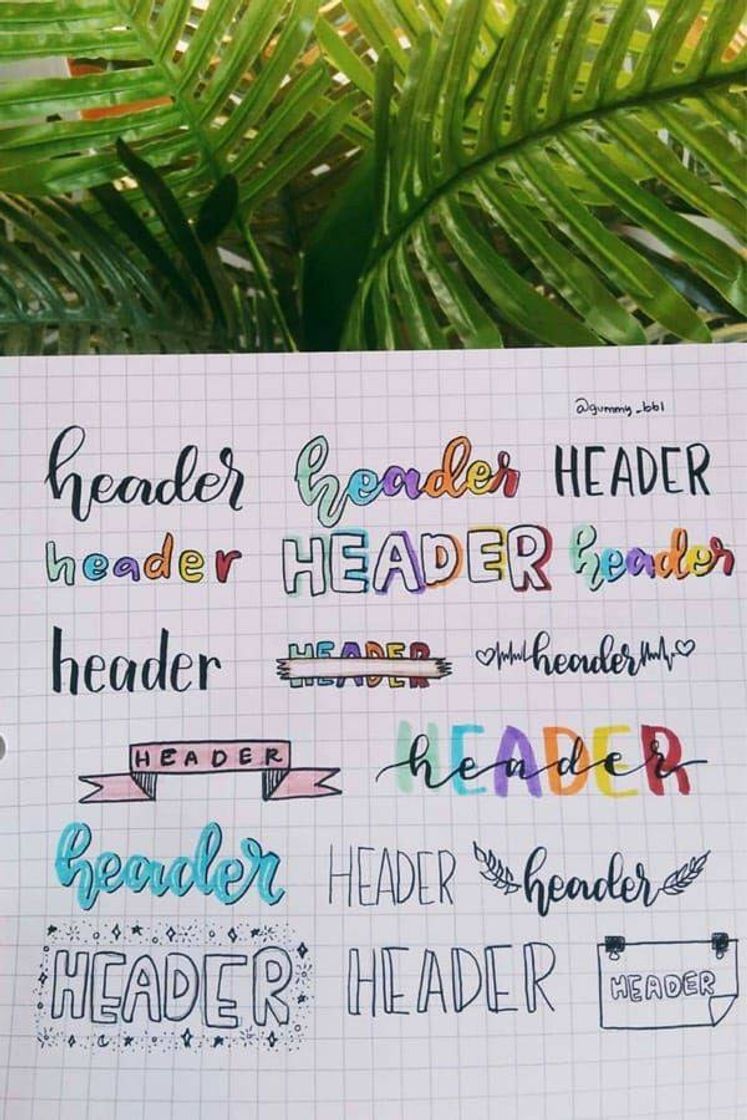 @gummy_bbl
header header HEADER
header HEADER header
header HEADER header
HEADER HEADER
header
header HEADER header
HEADER HEADER HEADER